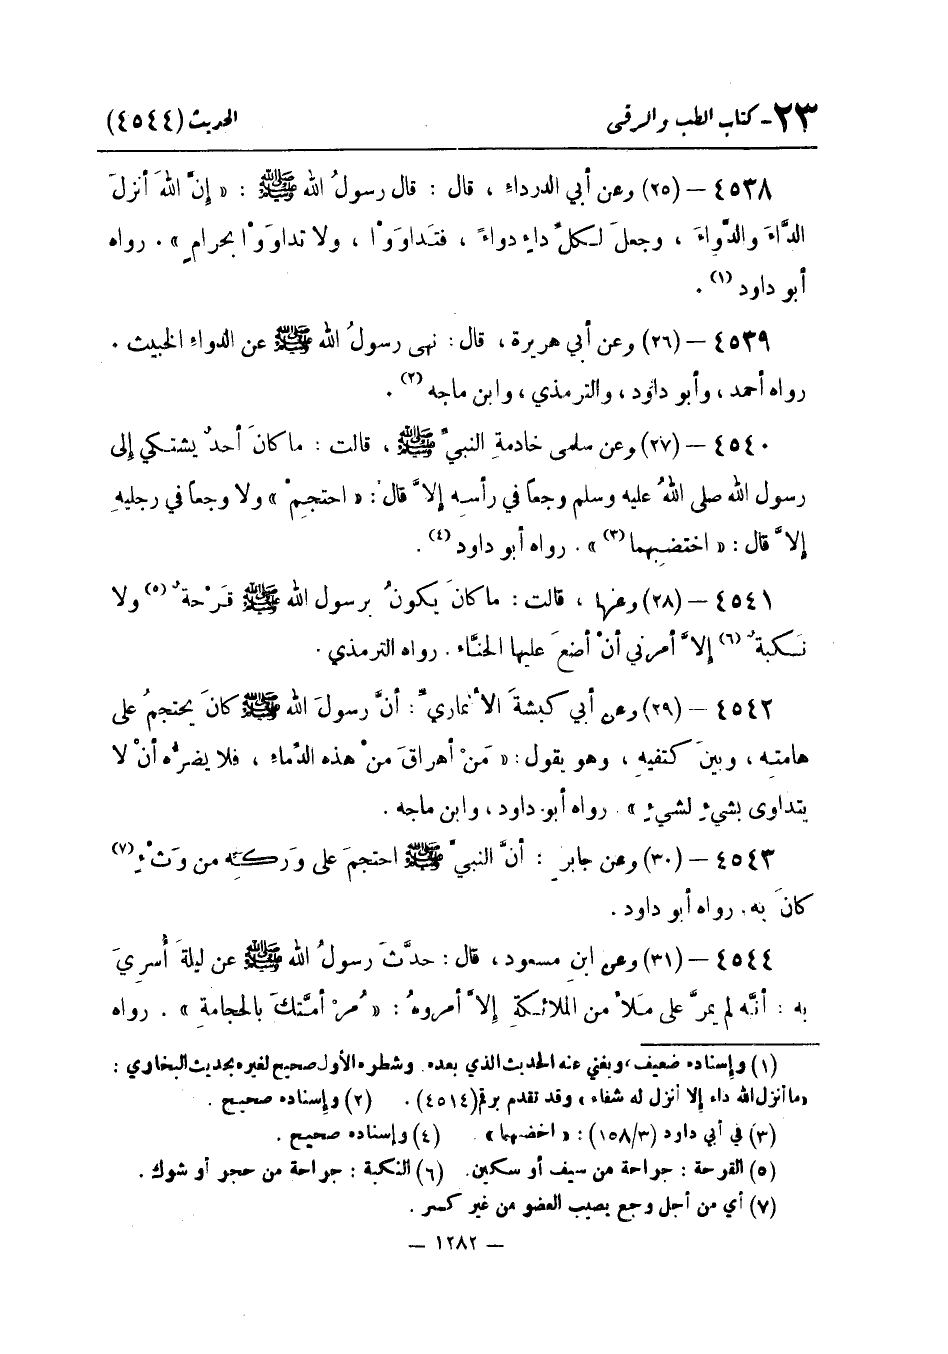 ٢٣- كتاب الطب والرقى الحديث (٤٥٤٤)
٤٥٣٨ – (٢٥) وعن أبي الدرداء ، قال : قال رسولُ الله ﷺ : « إِنَّ اللهَ أنزلَ
الدَّاءَ والدَّواءَ ، وجعلَ لكلِّ داءٍ دواءً ، فتَداوَوْا ، ولا تداوَوْا بحرامٍ » . رواه
أبو داود (١) .
٤٥٣٩ – (٢٦) وعن أبي هريرة ، قال : نهى رسولُ الله ﷺ عن الدواءِ الخبيث .
رواه أحمد ، وأبو داود ، والترمذي ، وابن ماجه (٢) .
٤٥٤٠ – (٢٧) وعن سلمى خادمةِ النبيِّ ﷺ ، قالت : ما كانَ أحدٌ يشتكي إلى
رسول الله صلى اللهُ عليه وسلم وجعاً في رأسهِ إلاَّ قال : « احتجِمْ » ولا وجعاً في رجليهِ
إلاَّ قال : « اختضِبهما (٣) » . رواه أبو داود (٤) .
٤٥٤١ – (٢٨) وعنها ، قالت : ما كانَ يكونُ برسول الله ﷺ قَرْحةٌ (٥) ولا
نَكبةٌ (٦) إلاَّ أمرني أنْ أضعَ عليها الحنَّاء . رواه الترمذي .
٤٥٤٢ – (٢٩) وعن أبي كبشةَ الأنماريِّ : أنَّ رسولَ الله ﷺ كانَ يحتجمُ على
هامتهِ ، وبينَ كتفيهِ ، وهو يقول : « مَنْ أهراقَ منْ هذه الدِّماءِ ، فلا يضرُّه أنْ لا
يتداوى بشيءٍ لشيءٍ » . رواه أبو داود ، وابن ماجه .
٤٥٤٣ – (٣٠) وعن جابرٍ : أنَّ النبيَّ ﷺ احتجمَ على وَرِكهِ من وَثْءٍ (٧)
كانَ به . رواه أبو داود .
٤٥٤٤ – (٣١) وعن ابنِ مسعود ، قال : حدَّثَ رسولُ الله ﷺ عن ليلةَ أُسرِيَ
به : أنَّه لم يمرَّ على مَلأٍ من الملائكةِ إلاَّ أمروهُ : « مُرْ أمَّتكَ بالحجامةِ » . رواه
(١) وإسناده ضعيف ، ويغني عنه الحديث الذي بعده . وشطره الأول صحيح لغيره بحديث البخاري :
« ما أنزل الله داء إلا أنزل له شفاء » وقد تقدم برقم (٤٥١٤) . (٢) وإسناده صحيح .
(٣) في أبي داود (١٥٨/٣) : « اخضبهما » . (٤) وإسناده صحيح .
(٥) القرحة : جراحة من سيف أو سكين . (٦) النكبة : جراحة من حجر أو شوك .
(٧) أي من أجل وجع يصيب العضو من غير كسر .
– ١٢٨٢ –